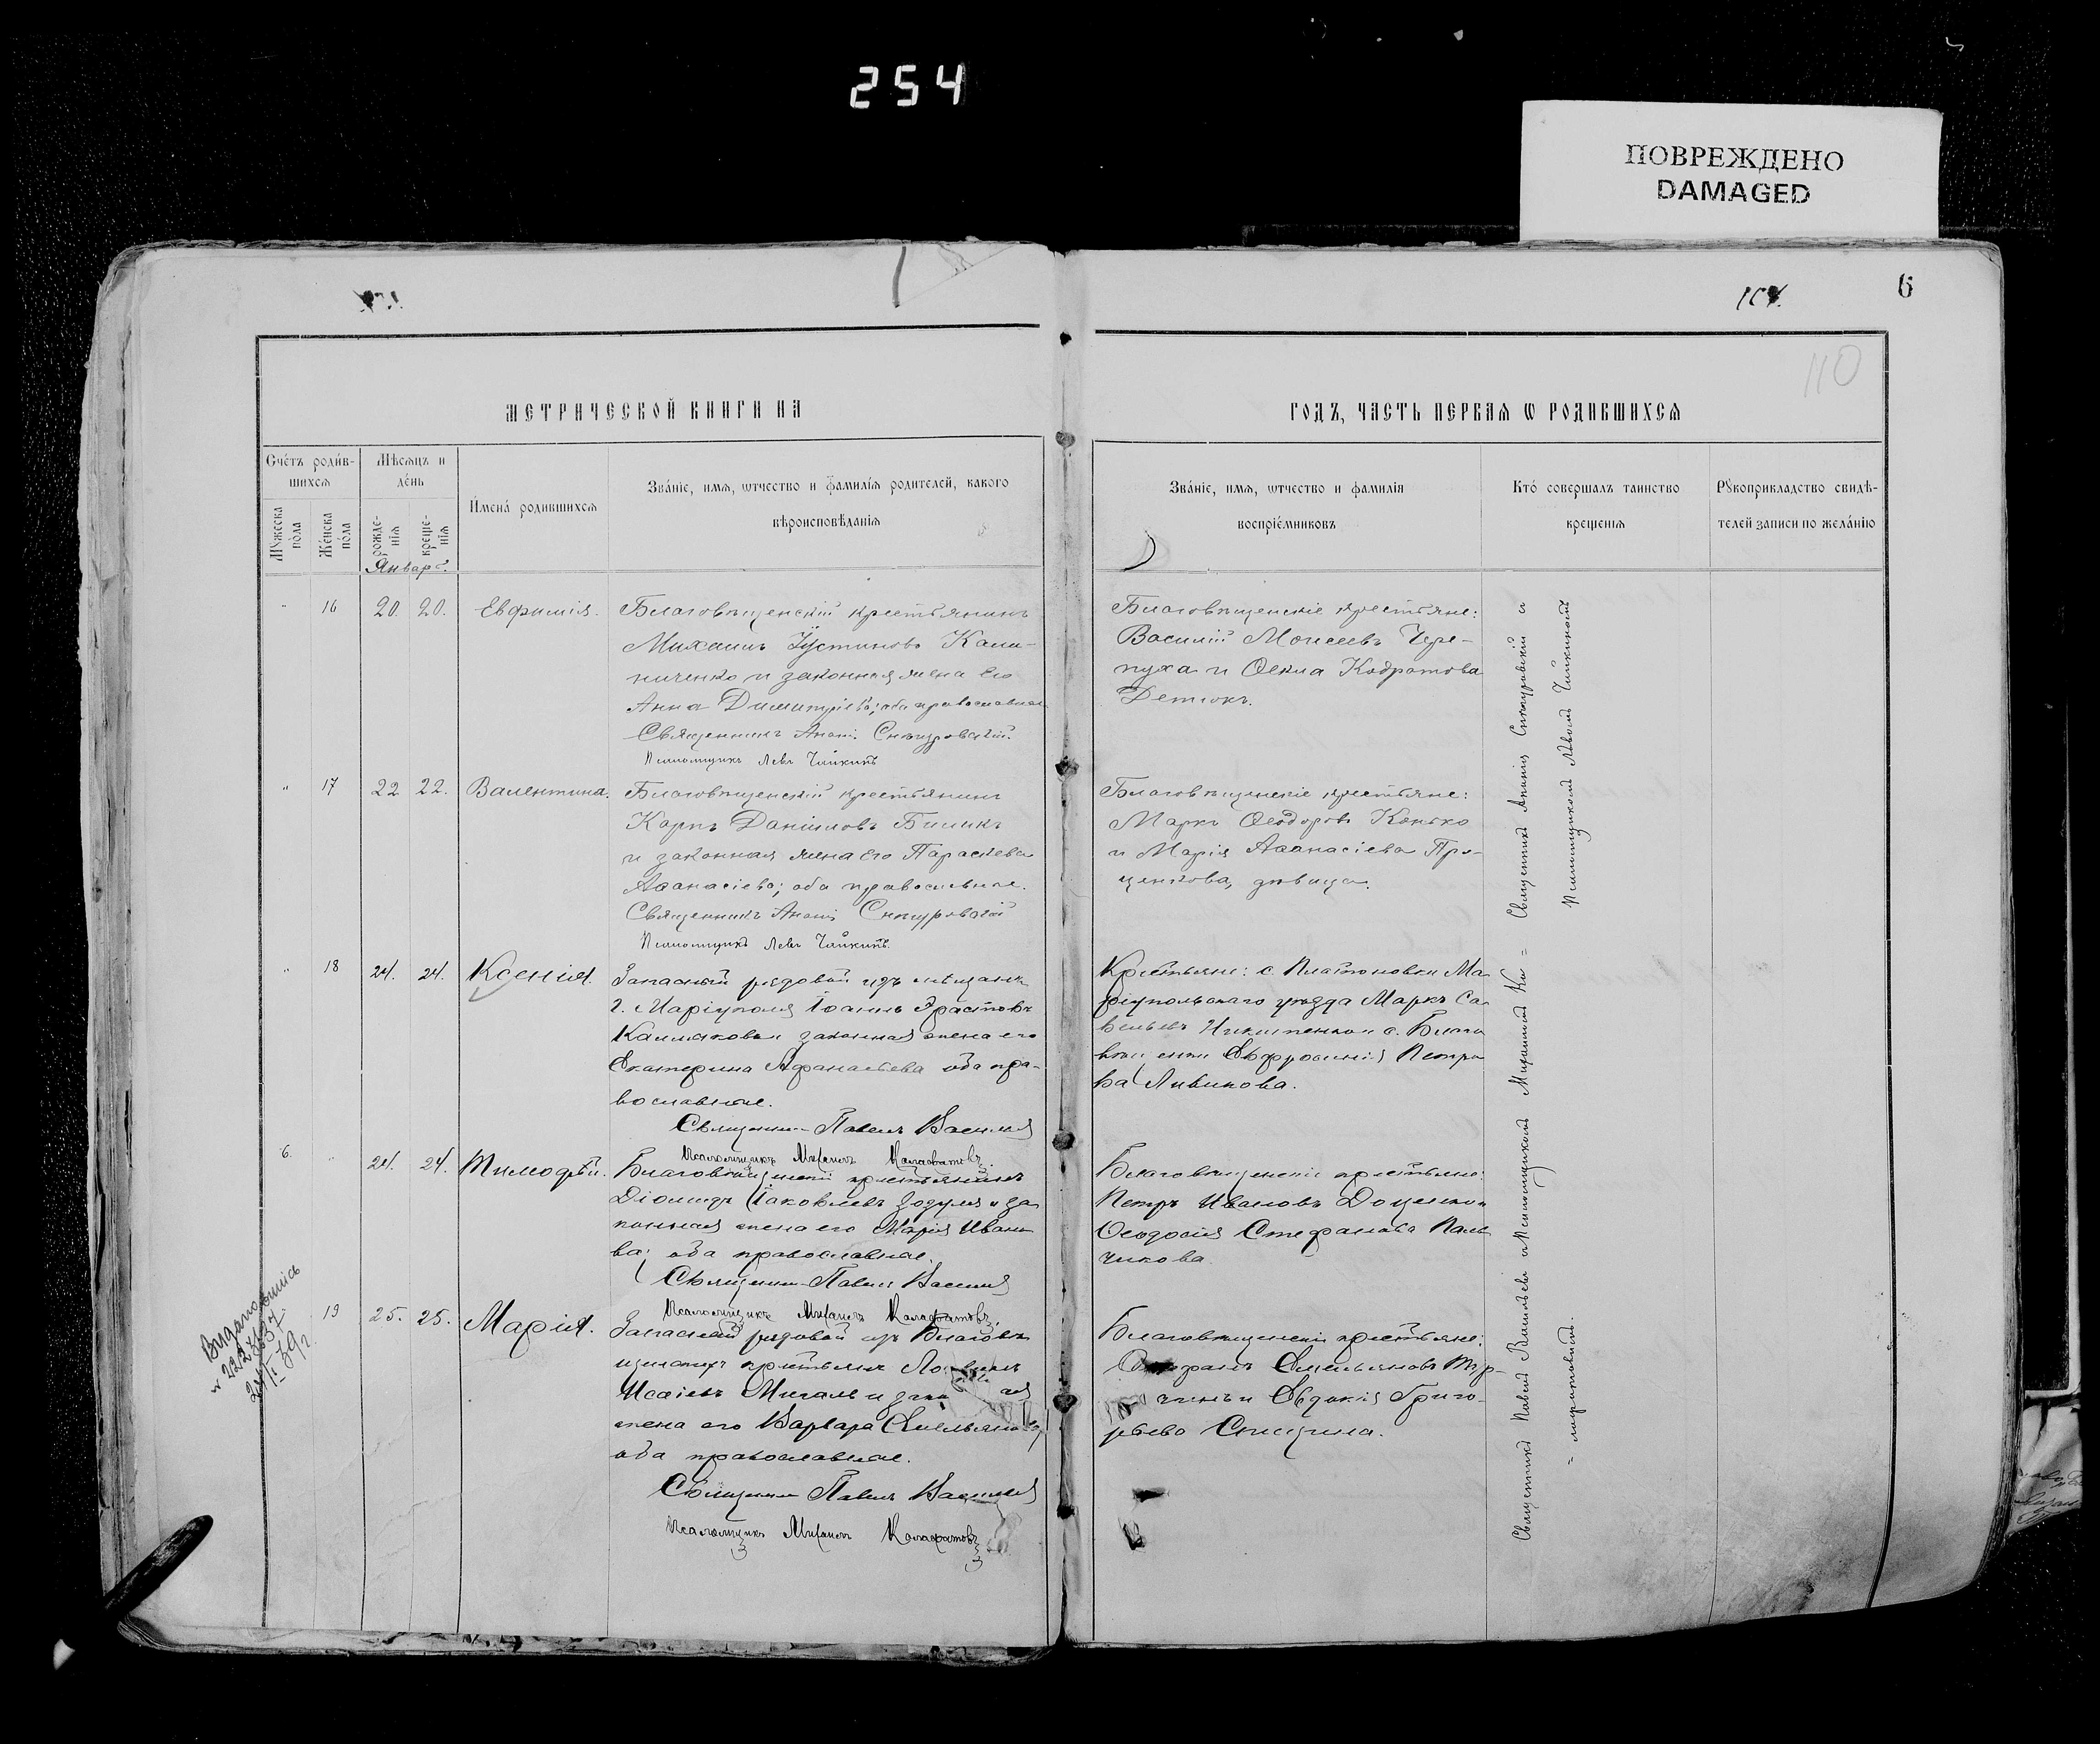 254
ПОВРЕЖДЕНО
DAMAGED
6
110
МЕТРИЧЕСКОЙ КНИГИ НА
ГОДЪ, ЧАСТЬ ПЕРВАѦ Ѡ РОДИВШИХСѦ
Счётъ родив-
шихсѧ
Мꙋжеска пола
Женска пола
Мѣсѧцъ и
день
рожде-
нїѧ
креще-
нїѧ
Имена родившихсѧ
Званїе, имѧ, ѿтчество и фамилїѧ родителей, какого
вѣроисповѣданїѧ
Званїе, имѧ, ѿтчество и фамилїѧ
воспрїемниковъ
Кто совершалъ таинство
крещенїѧ
Рꙋкоприкладство свидѣ-
телей записи по желанїю
Январь.
" 16 20. 20. Евфимія.
Благовѣщенскій крестьянинъ
Михаилъ Іустиновъ Кали-
ниченко и законная жена его
Анна Димитріева; оба православные
Священникъ Снѣгуровскій.
Псаломщикъ Левъ Чайкинъ
Благовѣщенскіе крестьяне:
Василій Моисеевъ Чере-
пуха и Ѳекла Кодратова
Детюкъ.
" 17 22 22. Валентина.
Благовѣщенскій крестьянинъ
Карпъ Даніиловъ Биликъ
и законная жена его Параскева
Аѳанасіева; оба православные.
Священникъ Снѣгуровскій
Псаломщикъ Левъ Чайкинъ.
Благовѣщенскіе крестьяне:
Маркъ Ѳеодоровъ Конько
и Марія Аѳанасіева Про-
ценкова, дѣвица.
" 18 24. 24. Ксенія.
Запасный рядовой изъ мѣщанъ
г. Маріуполя Іоаннъ Эрастовъ
Калмыковъ и законная жена его
Екатерина Афанасьева оба пра-
вославные.
Священникъ Павелъ Васильев
Псаломщикъ Михаилъ
Крестьяне: с. Платоновки Ма-
ріупольскаго уѣзда Маркъ Са-
вельевъ Никитенко и с. Благо-
вѣщенки Евфросинія Петро-
ва Литвинова.
6. " 24. 24. Тимофѣй.
Благовѣщенскій крестьянинъ
Діомидъ Іаковлевъ Зозуля и за-
конная жена его Марія Ивано-
ва; оба православные.
Священникъ Павелъ Васильев
Псаломщикъ Михаилъ
Благовѣщенскіе крестьяне:
Петръ Ивановъ Доценко и
Ѳеодосія Стефанова Паль-
чикова.
19 25. 25. Марія.
Запасный рядовой изъ Благовѣ-
щенскихъ крестьянъ
Исаіевъ Мигаль и
жена его Варвара Емельянова,
оба православные.
Священникъ Павелъ Васильев
Псаломщикъ Михаилъ
Благовѣщенскіе крестьяне:
Емельяновъ Тур-
чинъ и Евдокія Григо-
рьева Спицина.
Священникъ Павелъ Васильевъ и Псаломщикомъ Михаиломъ
Священникъ Снѣгуровскій и
Псаломщикомъ Львомъ Чайкинымъ